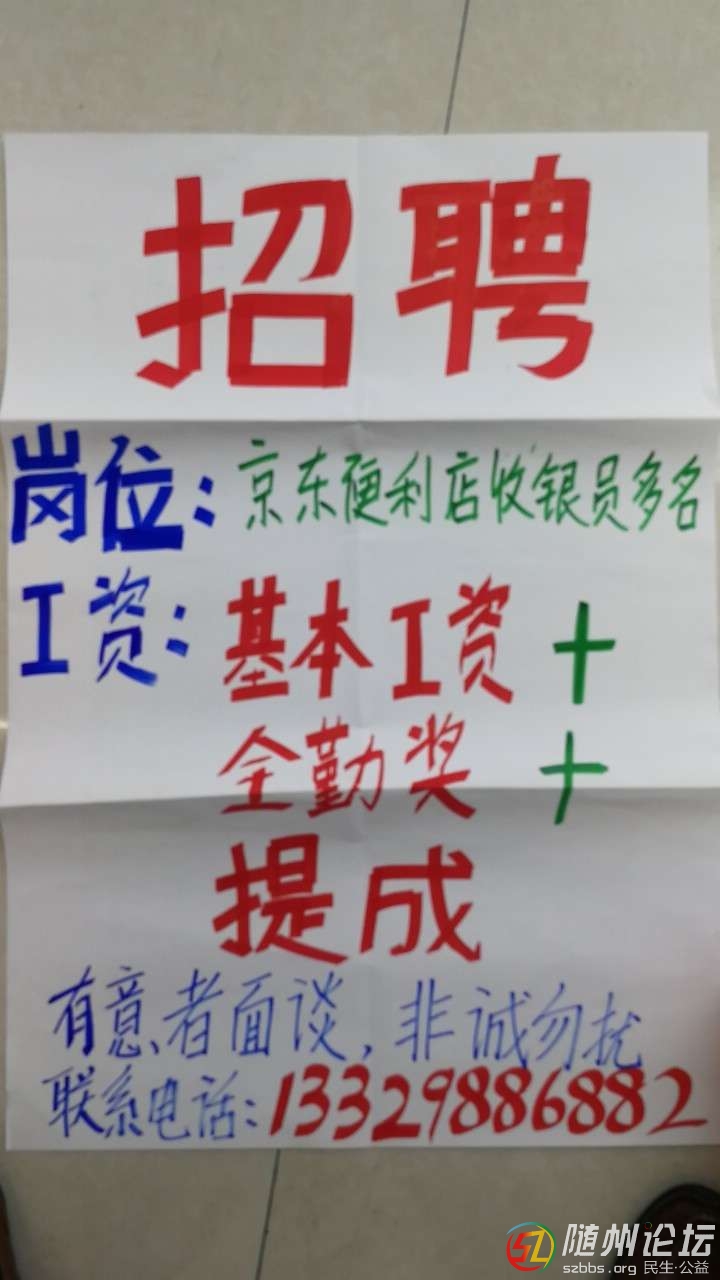 招聘
岗位：京东便利店收银员多名
工资：基本工资＋
全勤奖＋
提成
有意者面谈，非诚勿扰
联系电话：13329886882
随州论坛
szbbs.org 民生·公益